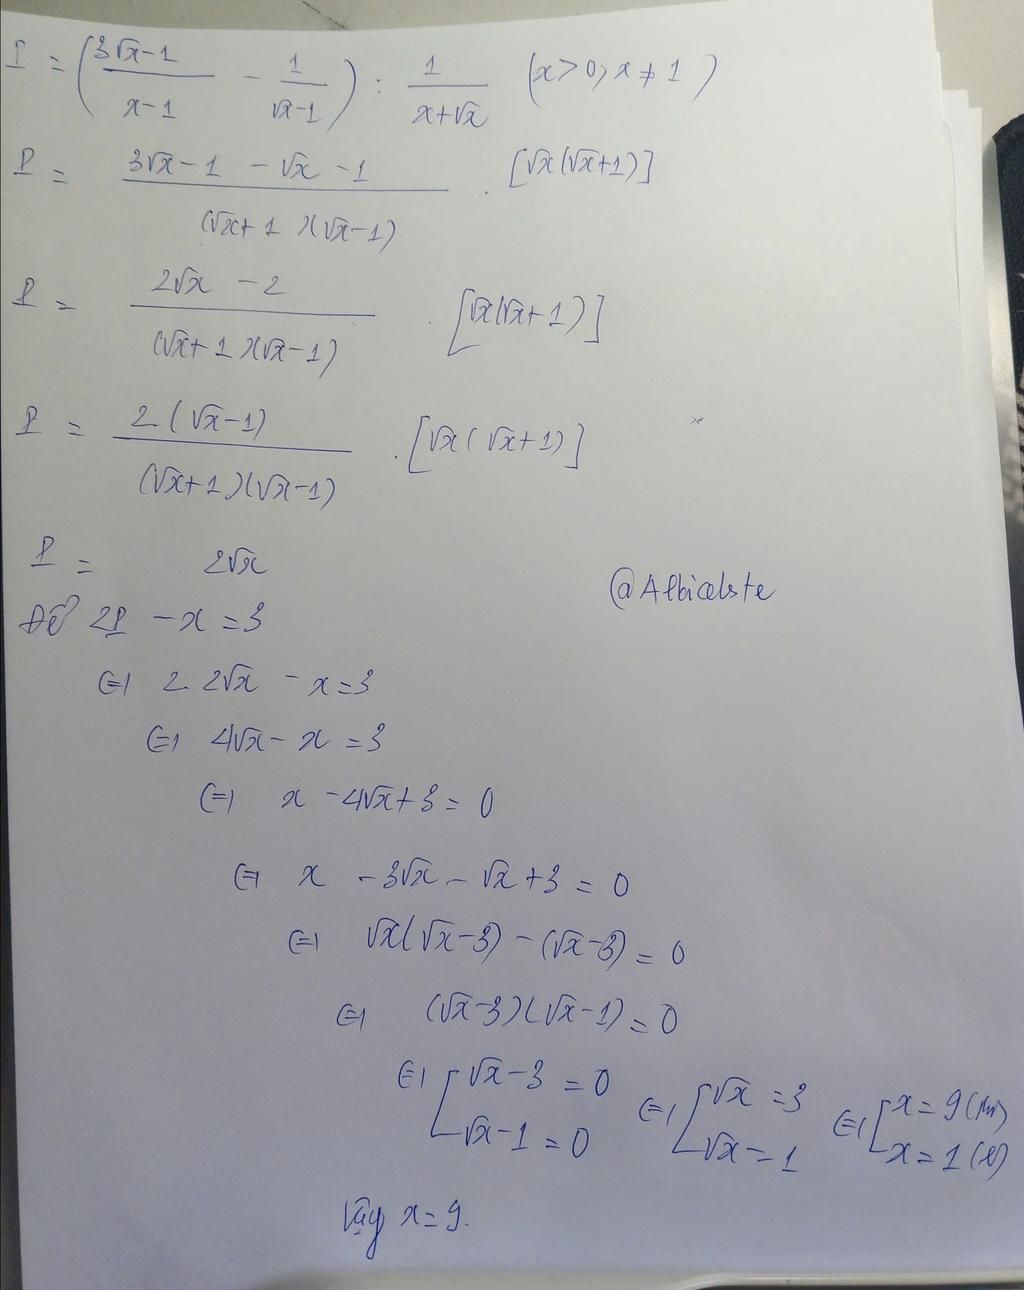 P = (3√x-1 / x-1 - 1 / √x-1) : 1 / x+√x (x>0, x≠1)
P = 3√x-1 -√x -1 / (√x+1)(√x-1) . [√x(√x+1)]
P = 2√x -2 / (√x+1)(√x-1) . [√x(√x+1)]
P = 2(√x-1) / (√x+1)(√x-1) . [√x(√x+1)]
P = 2√x
@Albicelste
Để 2P -x=3
⇔ 2.2√x -x=3
⇔ 4√x- x =3
⇔ x -4√x+3=0
⇔ x -3√x-√x+3=0
⇔ √x(√x-3)-(√x-3)=0
⇔ (√x-3)(√x-1)=0
⇔ [√x-3=0 ⇔ [√x=3 ⇔ [x=9(TM)
√x-1=0 √x=1 x=1(L)
Vậy x=9.